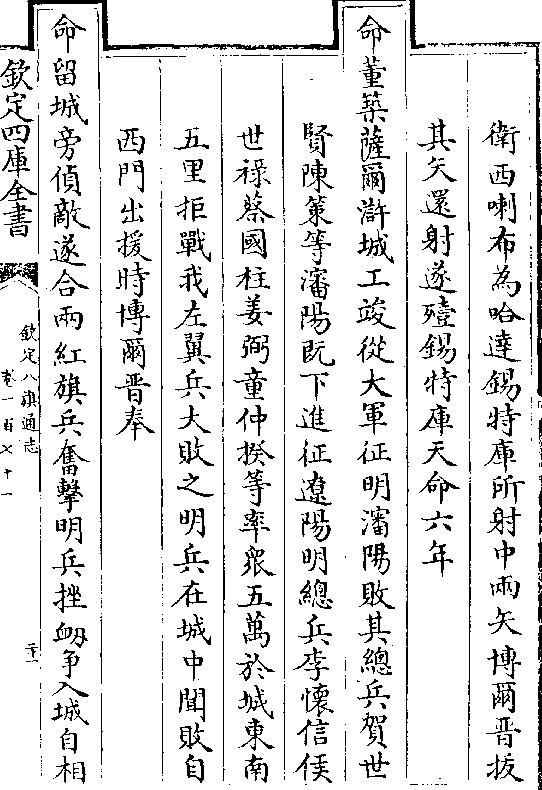 衛西喇布為哈達錫特庫所射中兩矢博爾晉拔
其矢還射遂殪錫特庫天命六年
命董築薩爾滸城工竣從大軍征明瀋陽敗其總兵賀世
賢陳策等瀋陽既下進征遼陽明總兵李懷信侯
世祿蔡國柱姜弼童仲揆等率衆五萬於城東南
五里拒戰我左翼兵大敗之明兵在城中聞敗自
西門出援時博爾晉奉
命留城旁偵敵遂合兩紅旗兵奮擊明兵挫衂爭入城自相
欽定四庫全書
欽定八旗通志
卷一百七十一
二十一